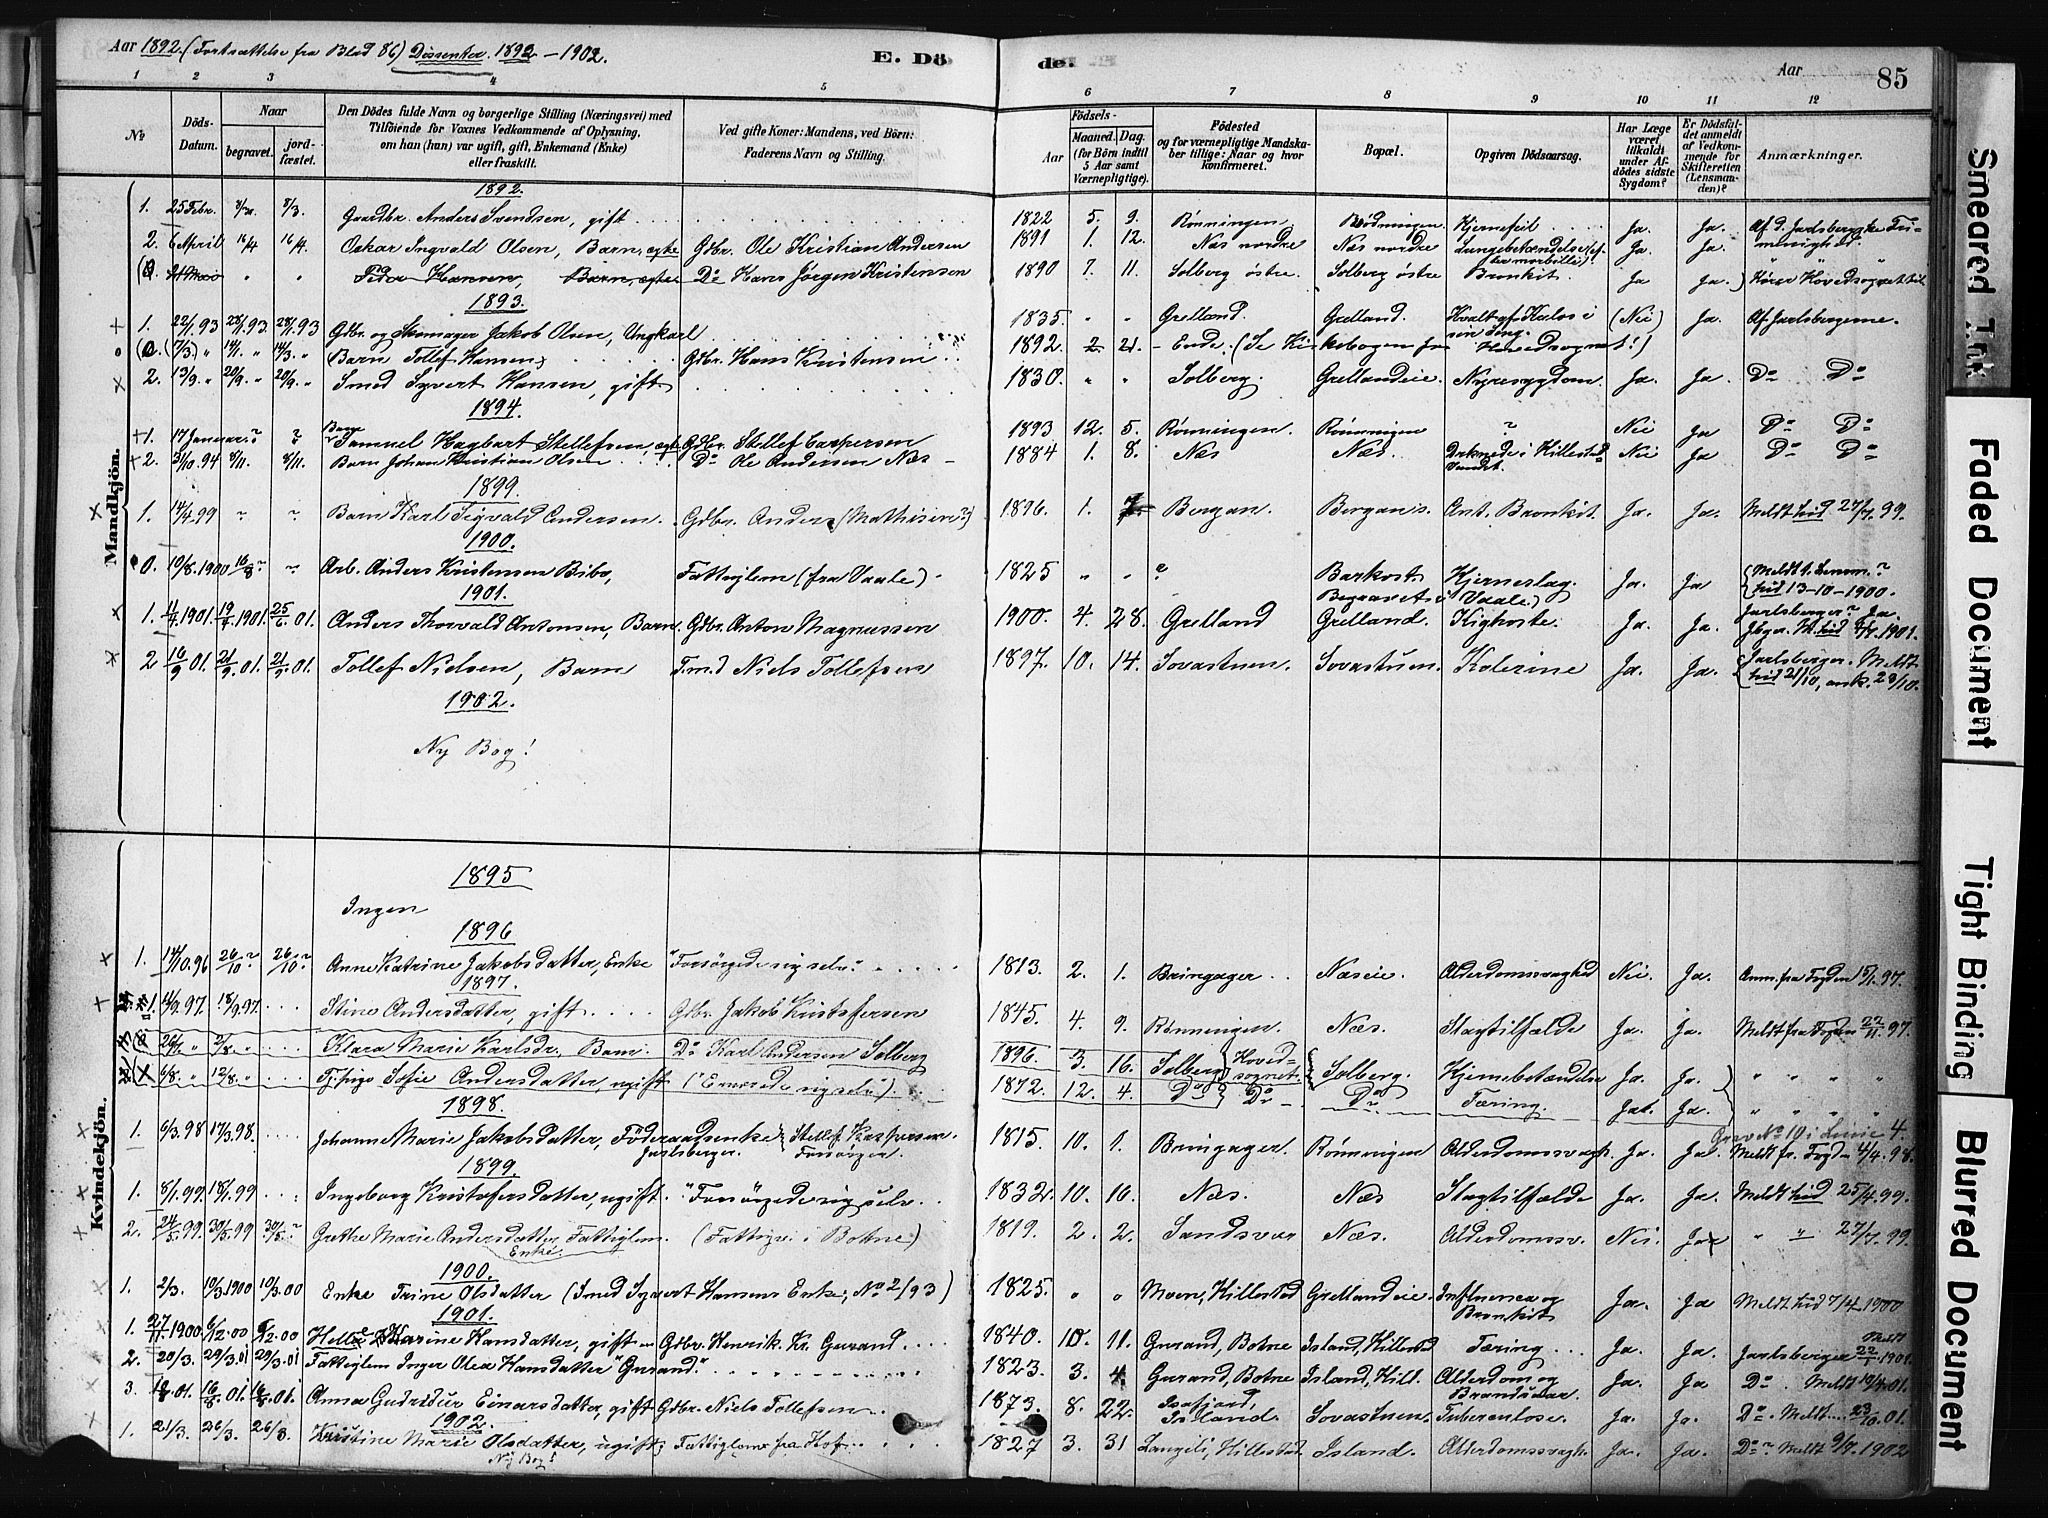 Aar 1892. (Fortsættelse fra Blad 86) Dissenter. 1892–1902.
E. Dö
de.
Aar
85
1 2 3 4 5 6 7 8 9 10 11 12
No
Döds-Datum.
Naar
begravet.
jordfæstet.
Den Dödes fulde Navn og borgerlige Stilling (Næringsvei) med
Tilföiende for Voxnes Vedkommende af Oplysning,
om han (hun) var ugift, gift, Enkemand (Enke)
eller fraskilt.
Ved gifte Koner: Mandens, ved Börn:
Faderens Navn og Stilling.
Födsels-
Aar
Maaned. Dag.
(for Börn indtil
5 Aar samt
Værnepligtige).
Födested
og for værnepligtige Mandska-
ber tillige: Naar og hvor
konfirmeret.
Bopæl.
Opgiven Dödsaarsag.
Har Læge
været
tilkaldt
under Af-
dödes sidste
Sygdom?
Er Dödsfal-
det anmeldt
af Vedkom-
mende for
Skifteretten
(Lensman-
den)?
Anmærkninger.
Mandkjön.
1892.
1. 25 Febr. 8/3. Gaardbr. Anders Svendsen, gift 1822 5. 9. Rønningen Rødningen Hjertefeil Ja. Ja. Af d. Jarlsbergske Fri-
2. 6 April 16/4 16/4. Oskar Ingvald Olsen, Barn, egte Gbr. Ole Kristian Andersen 1891 1. 12. Næs nordre Næs nordre Lungebetændelse (ef- Ja. Ja. menighed.
ter morbilli).
21 Mai " " Peder Hansen, Barn, egte Do Hans Jørgen Kristensen 1890 7. 11. Solberg østre. Solberg østre Bronkit. Ja Ja.) Hører Hovedsognet til
1893.
1. 22/1.93 28/1.93 28/1.93 Gbr. og Skomager Jakob Olsen, Ungkarl 1835. " " Grelland. Grelland. Kvalt af Kulos i (Nei) Ja. Af Jarlsbergerne.
sin Seng.
(7/3) " 14/1. " 14/3. " (Barn Tollef Hansen) Gbr. Hans Kristensen 1892. 2 21. Ende. (Se Kirkebogen for Hovedsognet!)
2. 13/9. " 20/9. " 20/9. " Smed Syvert Hansen, gift 1830. " " Solberg. Grellandeie. Nyresygdom. Ja. Ja. Do Do
1894.
+1. 17 Januar. ? ? Barn Samuel Hagbart Stellefsen, egte Gdbr. Stellef Caspersen 1893 12. 5. Rønningen. Rønningen ? Nei Ja Do Do
+2. 31/10.94 8/11. 8/11. Barn Johan Kristian Olsen Do Ole Andersen Næs 1884 1. 8. Næs Næs. Druknede i Hillestad- Nei Ja Do Do
vandet.
1899.
1. 14/4.99 " " Barn Karl Sigvald Andersen. Gdbr. Anders (Mathisen?) 1896. 1. 7. Bergan. Bergan. Ant. Bronkit. Ja. Ja. Meldt hid 27/7.99.
1900.
0. 10/8.1900 16/8 ? " Arb. Anders Kristensen Bibo, Fattiglem (fra Vaale) 1825 " " ? Barkost Hjerneslag. Ja. Ja (Meldt t. Lensm.?
Begravet i Vaale.) hid 13-10-1900.
1901.
1. 1901. 1901. 01. Anders Thorvald Antonsen, Barn. Gdbr. Anton Magnussen 1900. 4. 28. Grelland Grelland. Kighoste. Ja. Ja. Jarlsberger? Ja.
M. hid 1901.
2 16/9 01. 21/9.01. 21/9.01. Tollef Nielsen, Barn Smed Niels Tollefsen 1897. 10. 14. Sovastuen. Sovastuen. Kolerine Ja. Ja. Jarlsberger. Meldt
hid 21/10, ank. 23/10.
1902.
Ny Bog!
Kvindekjön.
1895
Ingen
1896
1. 17/10.96 26/10 ? 26/10 ? Anne Katrine Jakobsdatter, Enke "Forsørgede sig selv." 1813. 2. 1. Bringager Næseie. Alderdomssvaghed Nei. Ja. Anm. fra Fogden 15/1.97.
1897.
1. 14/9.97. 18/9.97. Stine Andersdatter, gift Gbr. Jakob Kristofersen 1845. 4. 9. Rønningen. Næs. Slagtilfælde Ja. Ja. Meldt fra Fogden 22/11.97.
26/ " 2/8. " Klara Marie Karlsdr., Barn. Do Karl Andersen Solberg 1896. 3. 16. Solberg (Hoved- Solberg. Hjernebetændelse Ja. Ja. " " " "
sognet.
6/8. " 12/8. " Tj.pige Sofie Andersdatter, ugift ("Ernærede sig selv"). 1872. 12. 4. Do Do Do Tæring. Ja. Ja. " " " "
1898.
1. 6/3.98 17/3.98. Johanne Marie Jakobsdatter, Föderaadsenke Stellef Kaspersen. 1815. 10. 1. Bringager. Rønningen Alderdomssvagh. Ja. Ja. Grav No 10 i Linie 4.
Jarlsberger. Forsørger. Meldt fr. Fogden 4/4.98.
1899.
1. 8/1.99. 18/1.99 Ingeborg Kristofersdatter, ugift. "Forsørgede sig selv. 1832. 10. 16. Næs. Næs Slagtilfælde Ja. Ja. Meldt hid 25/4.99.
2. 24/5.99. 30/5.99 30/5 ? Grethe Marie Andersdatter, Fattiglem. (Fattigv. i Botne) 1819. 2. 2. Sandsvær Næs. Alderdomssv. Nei. Ja " " 27/7.99.
Enke.
1900.
1. 2/3. 10/3 1900 10/3.00 Enke Trine Olsdatter (Smed Syvert Hansens Enke, No 2/93) 1825. " " Moen, Hillestad Grellandeie. Influenza og Ja. Ja Meldt hid 7/4.1900
Bronkit.
1901.
1. 27/11.1900 6/12.00 6/12.00 Helle Karine Hansdatter, gift Gdbr. Henrik Kr. Gurand. 1840. 10. 11. Gurand, Botne Island, Hillestad Tæring Ja. Ja. Meldt
2. 20/3. 29/3.01 29/3.01 Fattiglem Inger Olea Hansdatter "Gurand." 1823. 3. 4. Gurand, Botne Island, Hill. Alderdom og Ja. Ja Jarlsberger 1901.
Brandsaar.
3. 01. 16/8.01. 16/8.01. Anna Gudridur Einarsdatter, gift Gdbr. Niels Tollefsen 1873. 8. 22. Isafjord, Sovastuen. Tuberculose. Ja. Ja. Do. Meldt 01.
Island.
1902.
1. 21/3. 26/3. 26/3. Kristine Marie Olsdatter, ugift; Fattiglem fra Hof 1827 3. 31 Langeli, Hillestad Island. Alderdomssvagh. Ja. Ja. Do. ? Meldt 1902
Ny Bog!
Smeared Ink
Faded Document
Tight Binding
Blurred Document